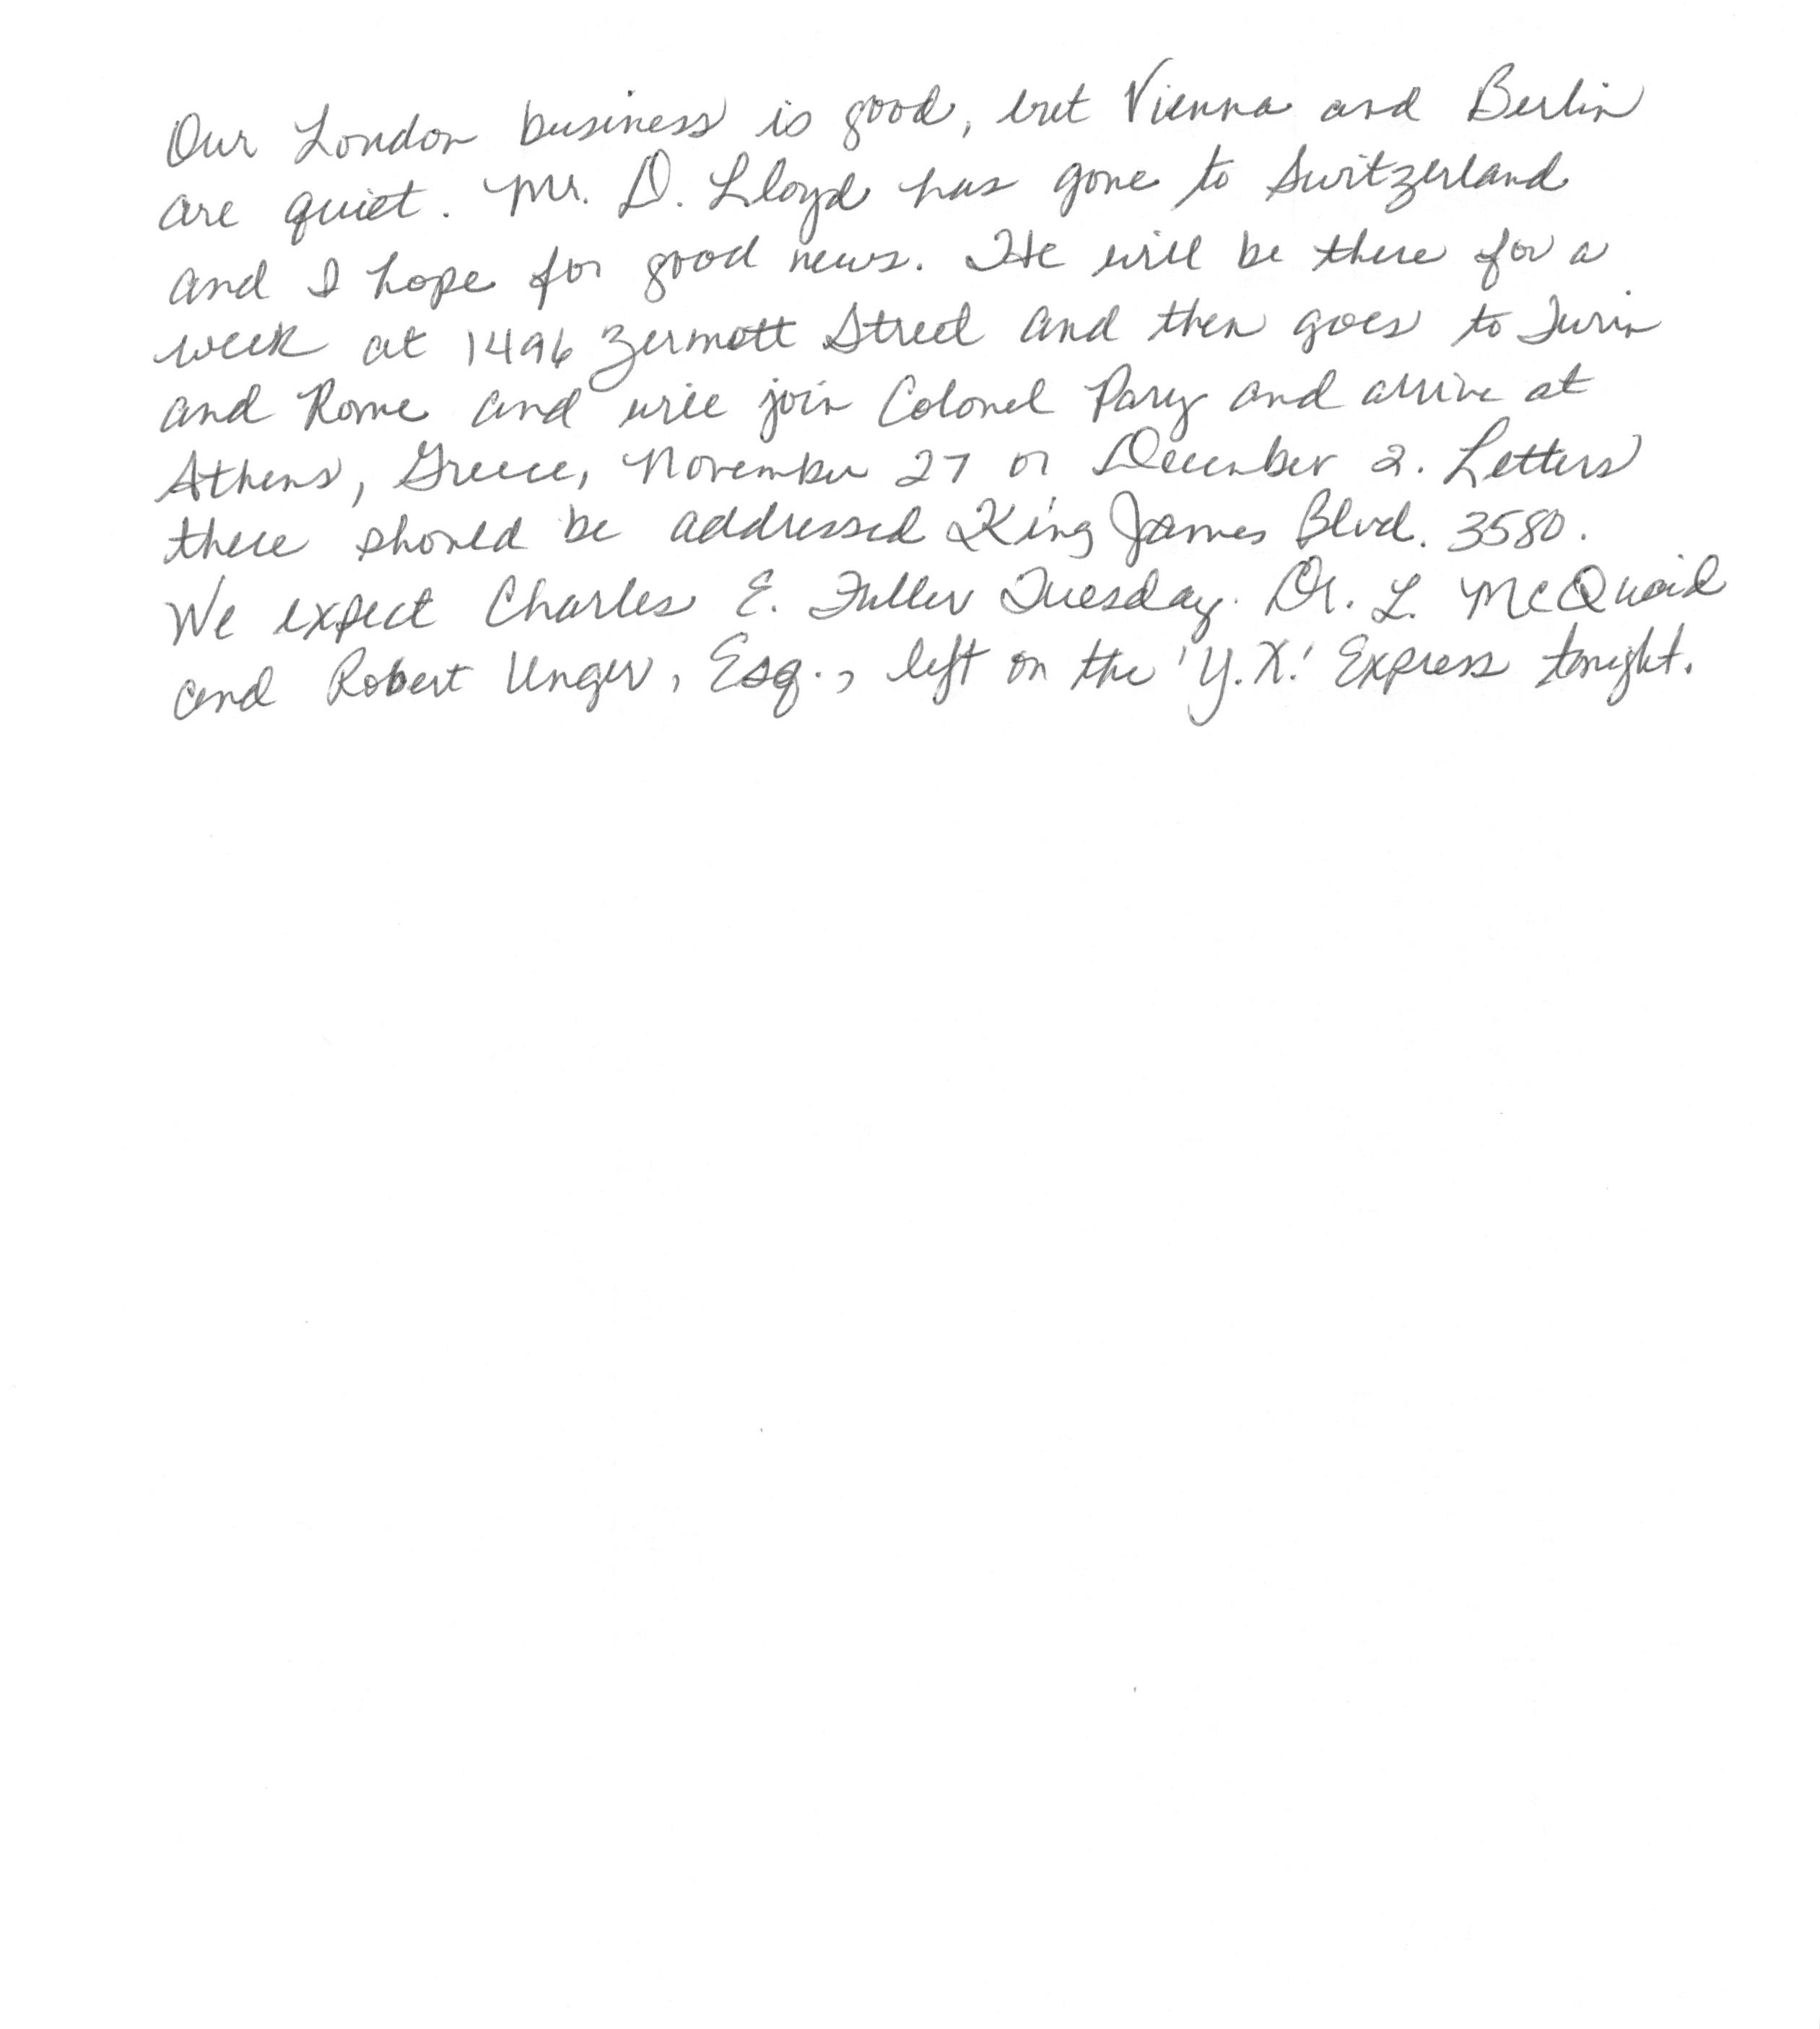 Our London business is good, but Vienna and Berlin
are quiet. Mr. D. Lloyd has gone to Switzerland
and I hope for good news. He will be there for a
week at 1496 Zermott Street and then goes to Turin
and Rome and will join Colonel Pary and arrive at
Athens, Greece, November 27 or December 2. Letters
there should be addressed King James Blvd. 3580.
We expect Charles E. Fuller Tuesday. Dr. L. McQuaid
and Robert Unger, Esq., left on the 'Y.X.' Express tonight.